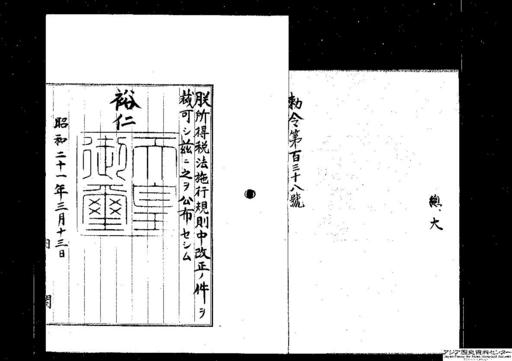 勅令第百三十八號
總、大
朕所得税法施行規則中改正ノ件ヲ
裁可シ茲ニ之ヲ公布セシム
裕仁
天皇御璽
昭和二十一年三月十三日
内閣
アジア歴史資料センター